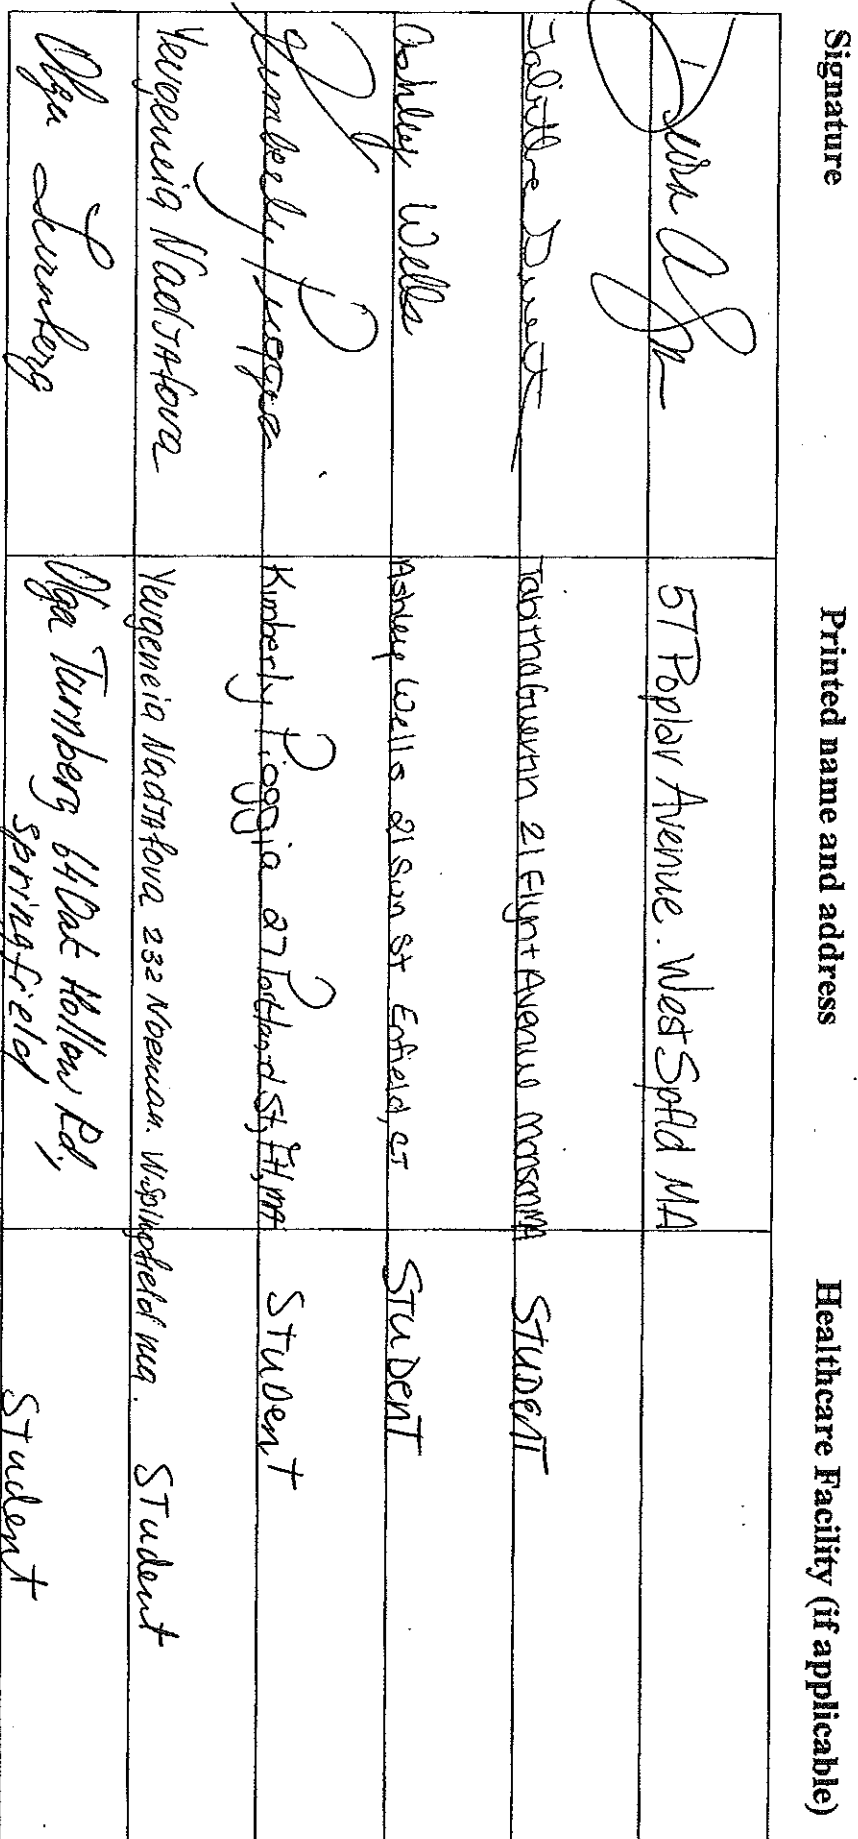 Signature Printed name and address Healthcare Facility (if applicable)
57 Poplar Avenue. West Spfld MA
Tabitha Guertin 21 Flynt Avenue Monson MA STUDENT
Ashley Wells Ashley Wells 21 Sun St Enfield, CT STUDENT
Kimberly Pioggia Kimberly Pioggia 27 Portland St, MA STUDENT
Yevgeneia Nadtafova Yevgeneia Nadtafova 232 Norman. W. Springfield ma. Student
Olga Turnberg Olga Turnberg 64 Oak Hollow Rd,
Springfield Student